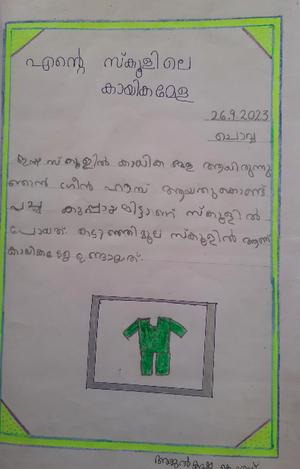 എന്റെ സ്കൂളിലെ
കായികമേള
26.9.2023
ചൊവ്വ
ഇന്ന് സ്കൂളിൽ കായിക മേള ആയിരുന്നു
ഞാൻ ഗ്രീൻ ഹൗസ് ആയതുകൊണ്ട്
പച്ച കുപ്പായമിട്ടാണ് സ്കൂളിൽ
പോയത്. സ്കൂളിൽ ആണ്
കായികമേള ഉണ്ടായത്.